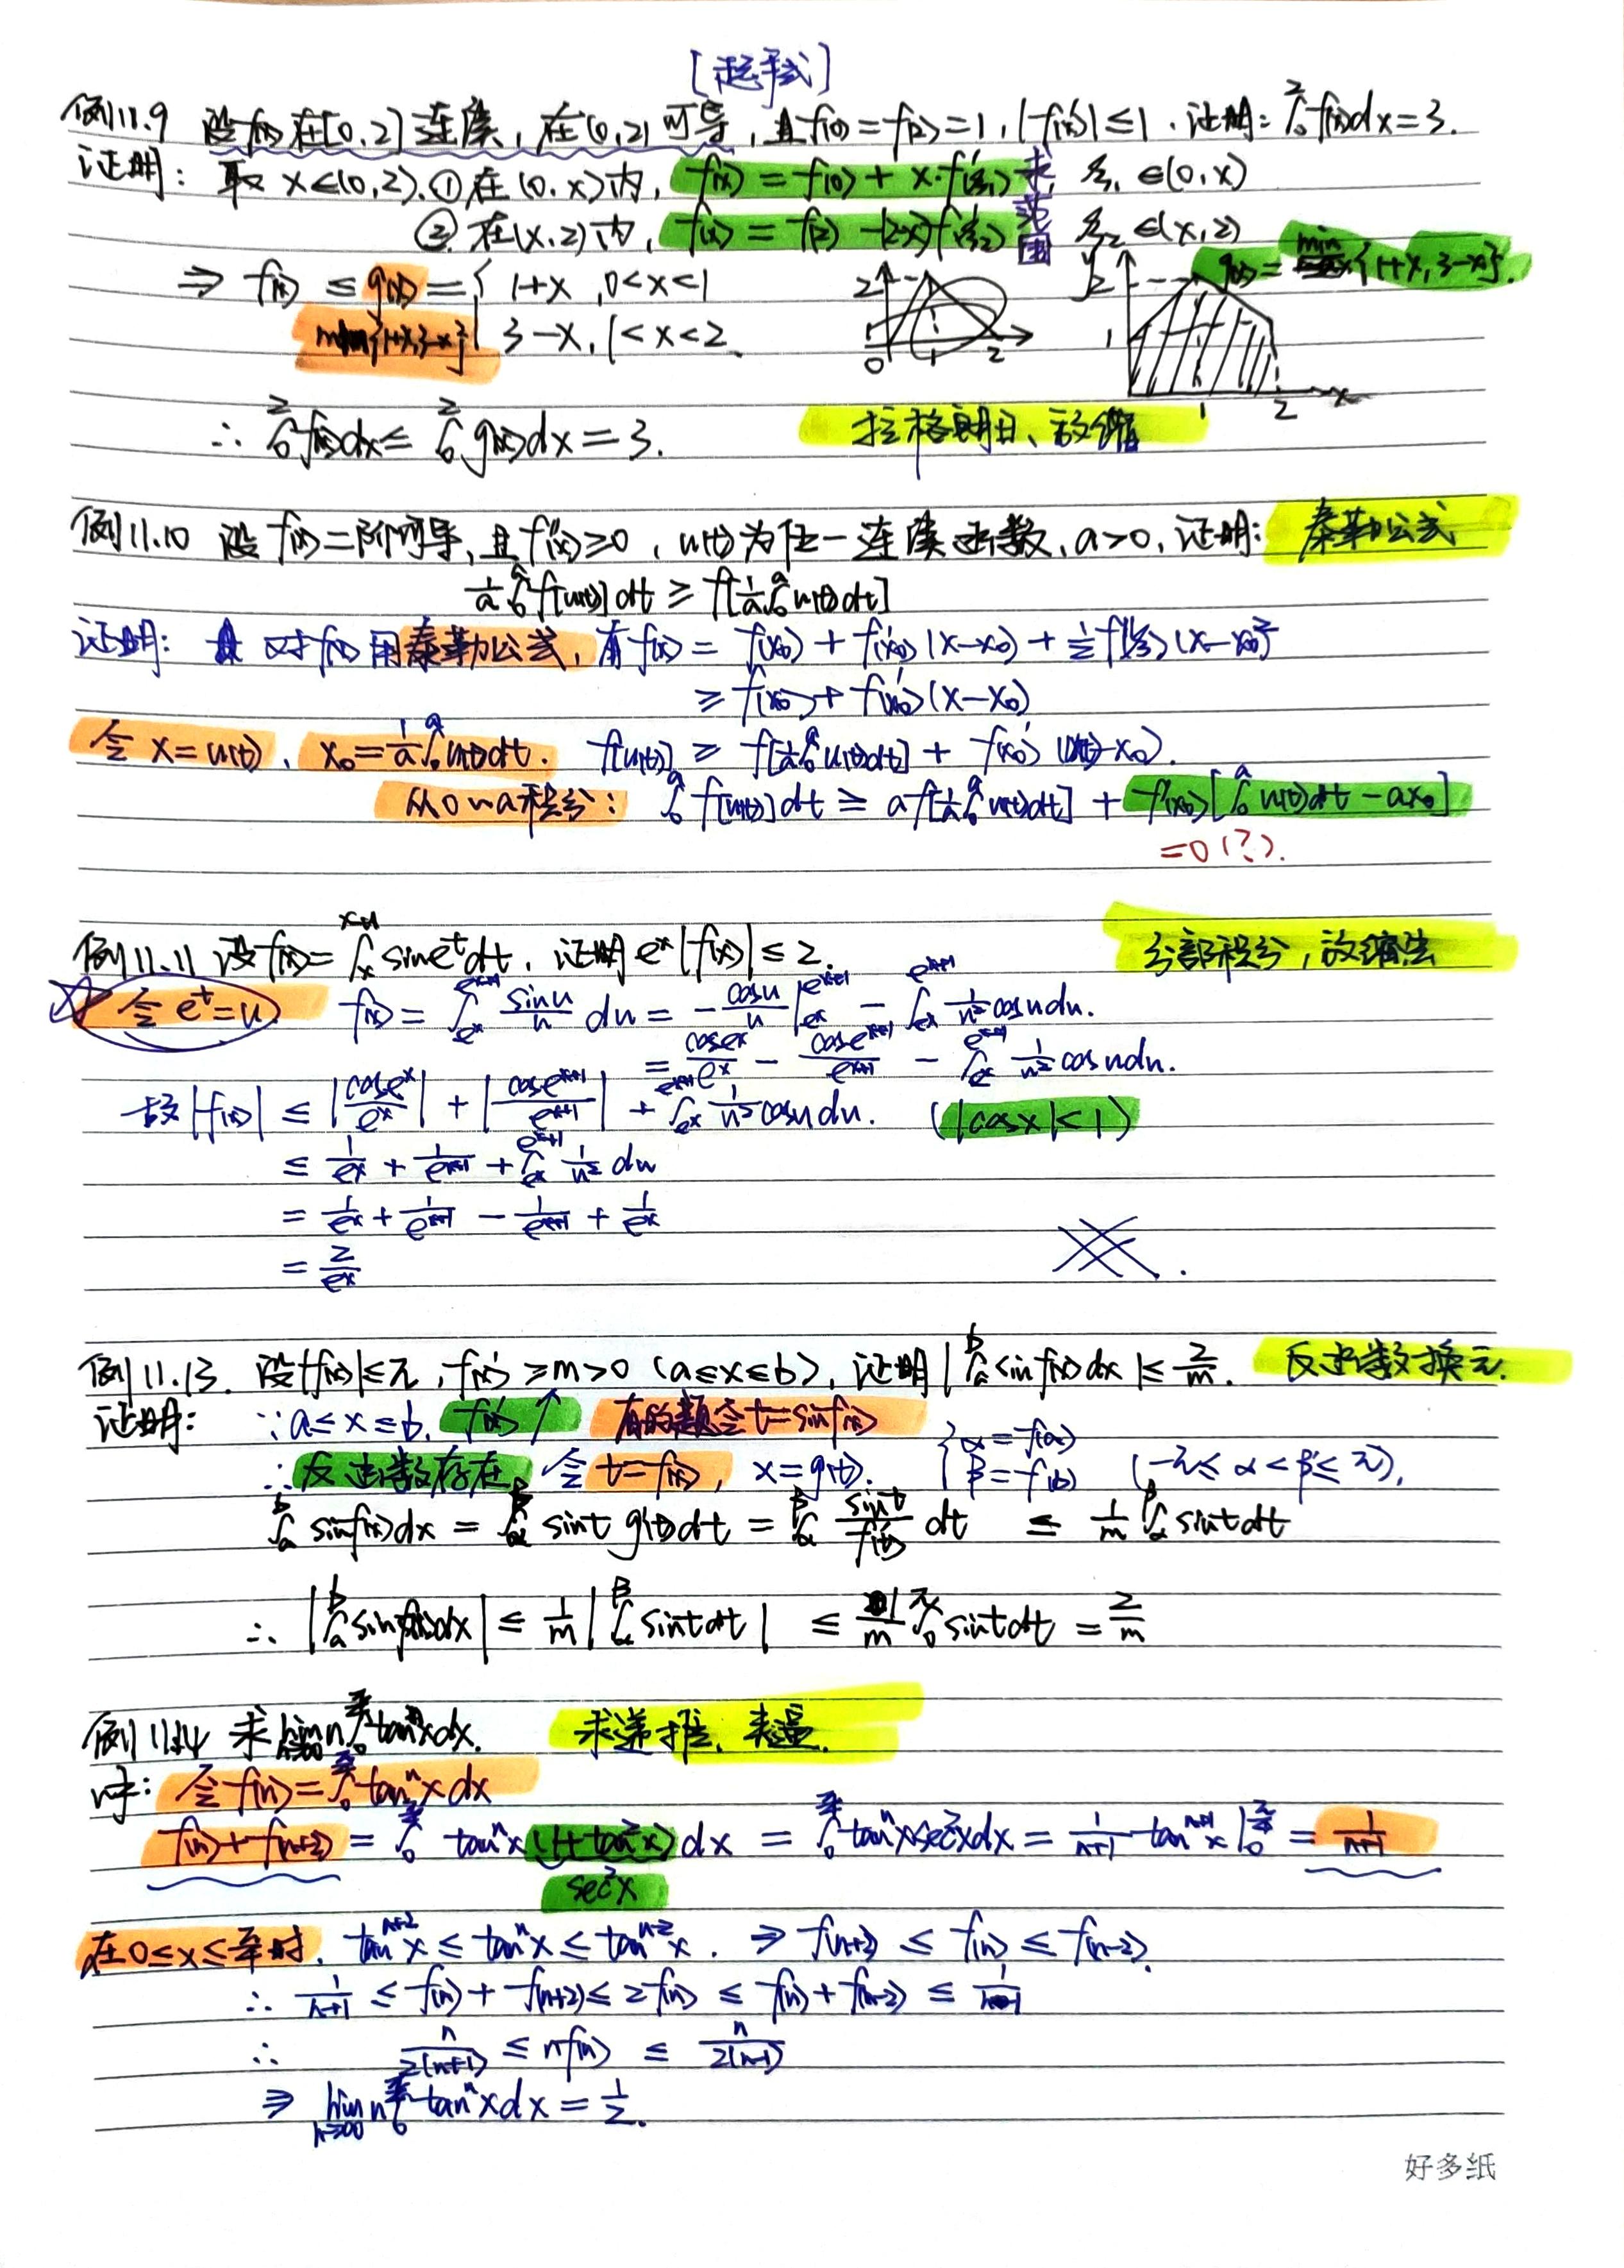 [起手式]
例11.9 设f(x)在[0,2]连续,在(0,2)可导,且f(0)=f(2)=1,|f'(x)|≤1.证明:∫₀²f(x)dx=3.
证明:取x∈(0,2).①在(0,x)内, f(x)=f(0)+x·f'(ξ₁) 求 ξ₁∈(0,x)
②在(x,2)内, f(x)=f(2)-(2-x)f'(ξ₂) 范围 ξ₂∈(x,2)
⇒ f(x) ≤ g(x) = { 1+x ,0<x<1
g(x)=min{1+x,3-x}.
min{1+x,3-x} 3-x,1<x<2.
2 1 0 1 2
y 2 1 1 2 x
∴ ∫₀²f(x)dx ≤ ∫₀²g(x)dx=3. 拉格朗日、放缩
例11.10 设f(x)二阶可导,且f''(x)≥0,u(t)为任一连续函数,a>0,证明: 泰勒公式
1/a ∫₀ᵃf[u(t)]dt ≥ f[1/a ∫₀ᵃu(t)dt]
证明: 对f(x)用泰勒公式,有f(x)= f(x₀)+f'(x₀)(x-x₀)+½f''(ξ)(x-x₀)²
≥ f(x₀)+f'(x₀)(x-x₀)
令x=u(t)、x₀=1/a ∫₀ᵃu(t)dt. f[u(t)] ≥ f[1/a ∫₀ᵃu(t)dt]+f'(x₀)(u(t)-x₀).
从0~a积分: ∫₀ᵃf[u(t)]dt ≥ af[1/a ∫₀ᵃu(t)dt]+f'(x₀)[∫₀ᵃu(t)dt-ax₀]
=0(?).
例11.11 设f(x)=∫ₓˣ⁺¹sineᵗdt,证明eˣ|f(x)|≤2. 分部积分,放缩法
☆令eᵗ=u f(x)=∫_{eˣ}^{eˣ⁺¹} sinu/u du = -cosu/u |_{eˣ}^{eˣ⁺¹} - ∫_{eˣ}^{eˣ⁺¹} 1/u² cosudu.
= coseˣ/eˣ - coseˣ⁺¹/eˣ⁺¹ - ∫_{eˣ}^{eˣ⁺¹} 1/u² cosudu.
故|f(x)| ≤ |coseˣ/eˣ| + |coseˣ⁺¹/eˣ⁺¹| + ∫_{eˣ}^{eˣ⁺¹} 1/u² cosudu. (|cosx|<1)
≤ 1/eˣ + 1/eˣ⁺¹ + ∫_{eˣ}^{eˣ⁺¹} 1/u² du
= 1/eˣ + 1/eˣ⁺¹ - 1/eˣ⁺¹ + 1/eˣ
= 2/eˣ
例11.13. 设|f(x)|≤π,f'(x)≥m>0(a≤x≤b),证明|∫ₐᵇsinf(x)dx|≤2/m. 反函数换元.
证明: ∵a≤x≤b, f(x)↑ 有的题令t=sinf(x)
∴反函数存在,令t=f(x), x=g(t). {α=f(a) β=f(b) (-π≤α<β≤π),
∫ₐᵇ sinf(x)dx = ∫_α^β sint g'(t)dt = ∫_α^β sint/f'(t) dt ≤ 1/m ∫_α^β sintdt
∴ |∫ₐᵇsinf(x)dx| ≤ 1/m |∫_α^β sintdt| ≤ 1/m ∫₀^π sintdt = 2/m
例11.14 求lim n∫₀^{π/4}tanⁿxdx. 求递推、夹逼.
解: 令f(n)=∫₀^{π/4}tanⁿxdx
f(n)+f(n+2) = ∫₀^{π/4} tanⁿx(1+tan²x)dx = ∫₀^{π/4}tanⁿxsec²xdx = 1/(n+1) tanⁿ⁺¹x|₀^{π/4} = 1/(n+1)
sec²x
在0≤x≤π/4时, tanⁿ⁺²x ≤ tanⁿx ≤ tanⁿ⁻²x. ⇒ f(n+2) ≤ f(n) ≤ f(n-2).
∴ 1/(n+1) ≤ f(n)+f(n+2) ≤ 2f(n) ≤ f(n)+f(n-2) ≤ 1/(n-1)
∴ n/2(n+1) ≤ nf(n) ≤ n/2(n-1)
⇒ lim_{n→∞} n∫₀^{π/4} tanⁿxdx = 1/2.
好多纸